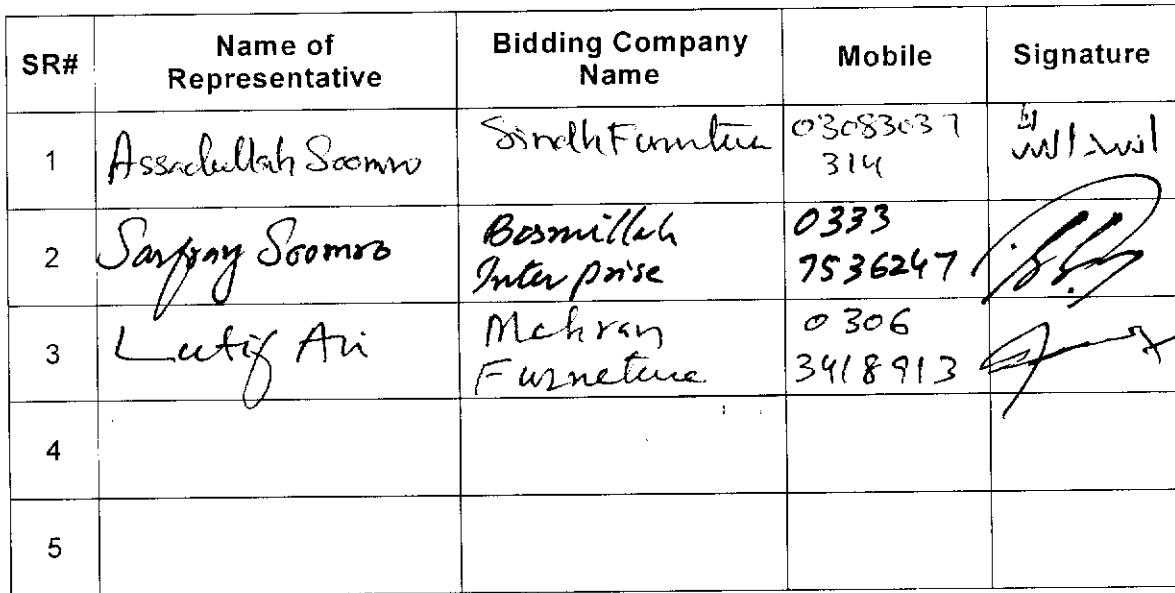 SR# Name of Representative Bidding Company Name Mobile Signature
1 Assadullah Soomro Sindh Furniture 03083037
314
2 Sarfraz Soomro Bosmillah 0333
Inter prise 7536247
3 Lutif Ali Mehran 0306
Furneture 3418913
4
5